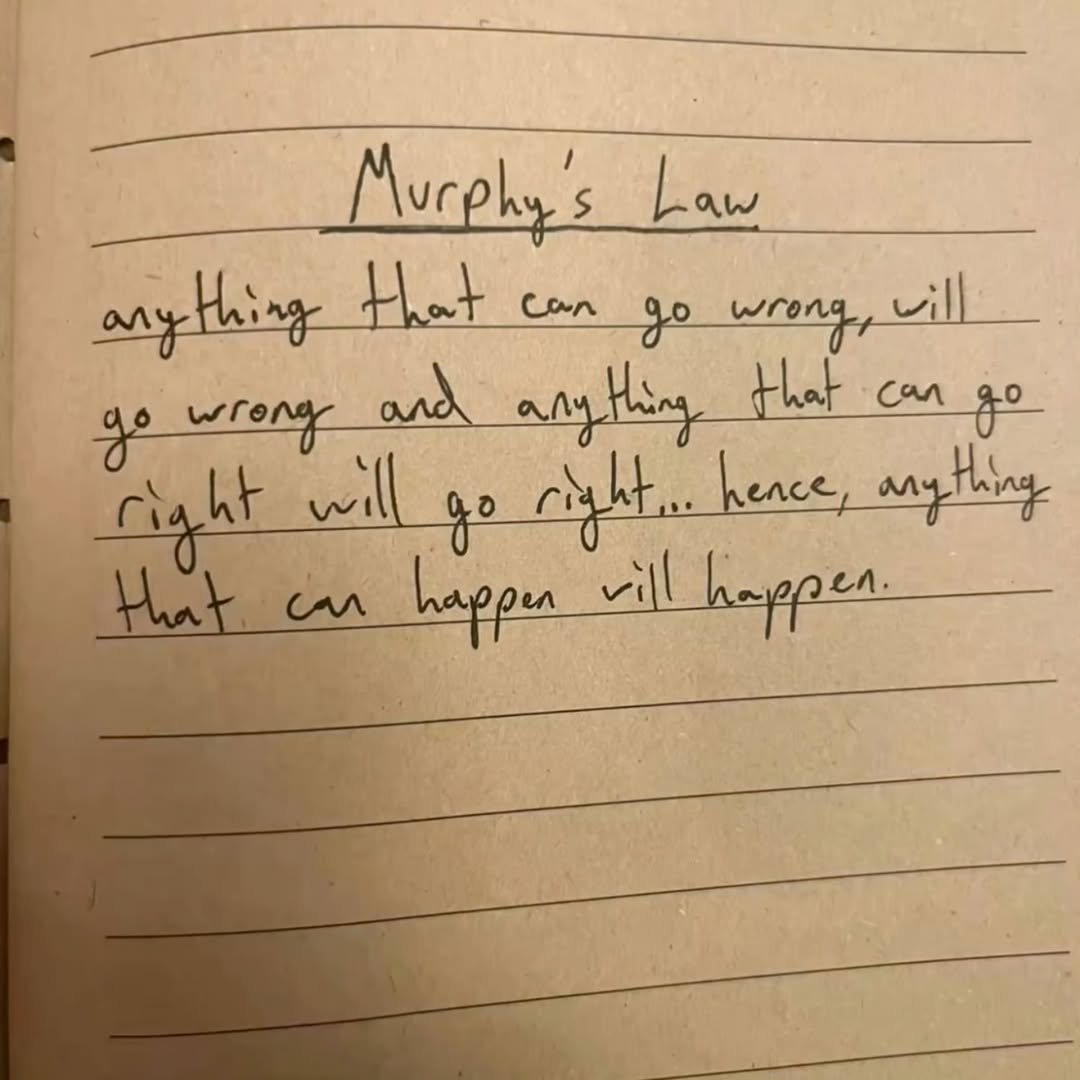 Murphy's Law
anything that can go wrong, will
go wrong and anything that can go
right will go right... hence, anything
that can happen will happen.